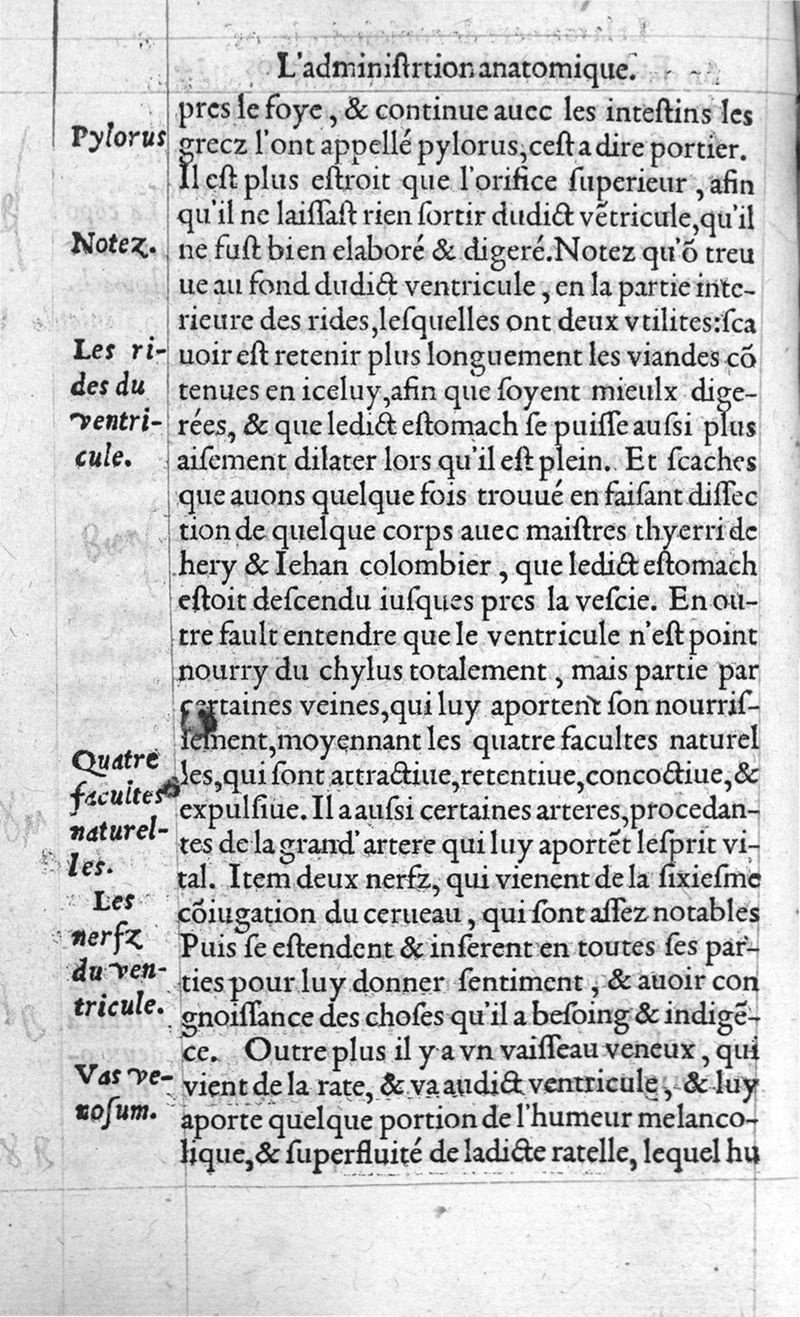 L'adminiſtrtion anatomique.
pres le foye, & continue auec les inteſtins les
Pylorus
grecz l'ont appellé pylorus, ceſt a dire portier.
Il eſt plus eſtroit que l'orifice ſuperieur, afin
qu'il ne laiſſaſt rien ſortir dudict vẽtricule, qu'il
Notez.
ne fuſt bien elaboré & digeré. Notez qu'õ treu
ue au fond dudict ventricule, en la partie inte-
rieure des rides, leſquelles ont deux vtilites: ſca
Les ri-
des du
ventri-
cule.
uoir eſt retenir plus longuement les viandes cõ
tenues en iceluy, afin que ſoyent mieulx dige-
rées, & que ledict eſtomach ſe puiſſe auſsi plus
aiſement dilater lors qu'il eſt plein. Et ſcaches
que auons quelque fois trouué en faiſant diſſec
tion de quelque corps auec maiſtres thyerri de
Bien
hery & Iehan colombier, que ledict eſtomach
eſtoit deſcendu iuſques pres la veſcie. En ou-
tre fault entendre que le ventricule n'eſt point
nourry du chylus totalement, mais partie par
certaines veines, qui luy aportent ſon nourriſ-
ſement, moyennant les quatre facultes naturel
Quatre
facultes
naturel-
les.
les, qui ſont attractiue, retentiue, concoctiue, &
expulſiue. Il a auſsi certaines arteres, procedan-
tes de la grand' artere qui luy aportẽt leſprit vi-
tal. Item deux nerfz, qui vienent de la ſixieſme
Les
nerfz
du ven-
tricule.
cõiugation du cerueau, qui ſont aſſez notables
Puis ſe eſtendent & inſerent en toutes ſes par-
ties pour luy donner ſentiment, & auoir con
gnoiſſance des choſes qu'il a beſoing & indigẽ-
ce. Outre plus il y a vn vaiſſeau veneux, qui
Vas ve-
noſum.
vient de la rate, & va audict ventricule, & luy
aporte quelque portion de l'humeur melanco-
lique, & ſuperfluité de ladicte ratelle, lequel hu